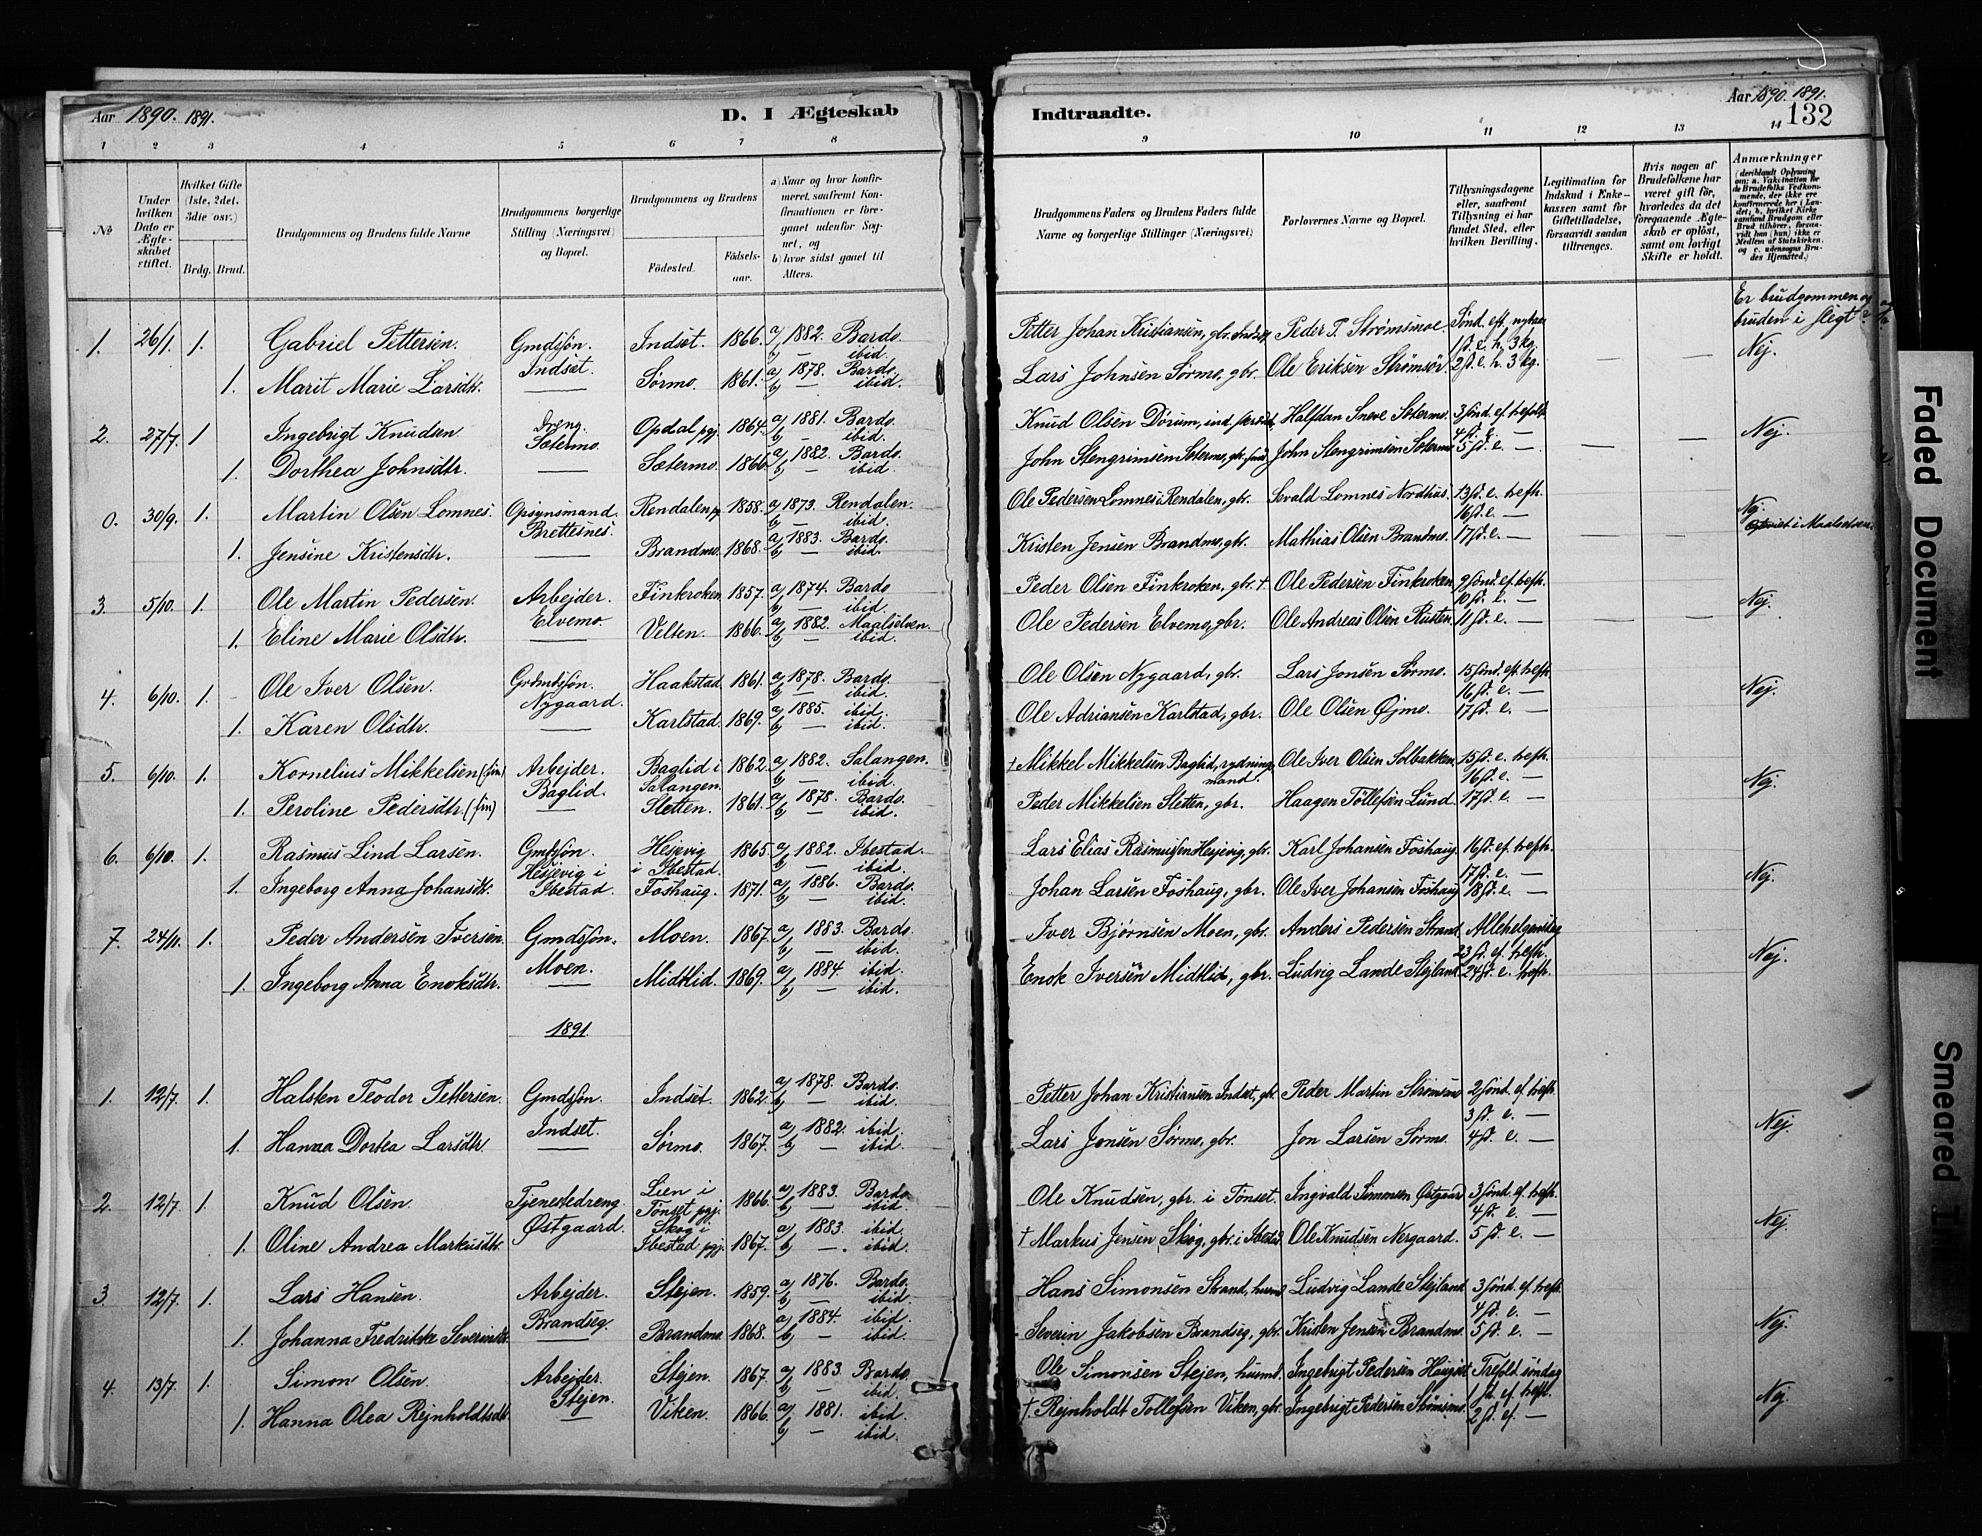 Aar 1890. 1891.
D. I Ægteskab
Indtraadte.
Aar 1890. 1891.
132
1 2 3 4 5 6 7 8
9 10 11 12 13 14
No
Under hvilken Dato er Ægteskabet stiftet.
Hvilket Gifte (1ste, 2det, 3die osv.)
Brdg. Brud.
Brudgommens og Brudens fulde Navne
Brudgommens borgerlige Stilling (Næringsvei) og Bopæl.
Brudgommens og Brudens
Födested.
Födselsaar.
a) Naar og hvor konfirmeret, saafremt Konfirmationen er foregaaet udenfor Sognet, og
b) hvor sidst gaaet til Alters.
Brudgommens Faders og Brudens Faders fulde Navne og borgerlige Stillinger (Næringsvei)
Forlovernes Navne og Bopæl.
Tillysningsdagene eller, saafremt Tillysning ei har fundet Sted, efter hvilken Bevilling.
Legitimation for Indskud i Enkekassen samt for Giftetilladelse, forsaavidt saadan tiltrænges.
Hvis nogen af Brudefolkene har været gift för, hvorledes da det foregaaende Ægteskab er oplöst, samt om lovligt Skifte er holdt.
Anmærkninger
(deriblandt Oplysning om: a. Vaksination for de Brudefolks Vedkommende, der ikke ere konfirmerede her i Landet; b. hvilket Kirkesamfund Brudgom eller Brud tilhörer, forsaavidt han (hun) ikke er Medlem af Statskirken, og c. udensogns Brudes Hjemsted.)
Er brudgommen og bruden i slegt?
1. 26/1. 1. Gabriel Pettersen. Gmdsøn. Indset. 1866. a) 1882. Bardo. Petter Johan Kristiansen, gbr. Indset Peder P. Strømsmoe. Sønd. eft. nytaar
Indset. b) — ibid. 1 s. e. h. 3 kg. Nej.
1. Marit Marie Larsdtr. — Sørmo. 1861. a) 1878. Bardo. Lars Johnsen Sørmo, gbr. Ole Eriksen Strømsør. 2 s. e. h. 3 kg. — —
b) — ibid.
2. 27/7. 1 Ingebrigt Knudsen. Dreng. Opdal pgj. 1864. a) 1881. Bardo. Knud Olsen Dørum, ind. Halfdan Sneve Sætermo. 3 sønd. ef. trefolt.
Sætermo. b) — ibid. 4 s. e. — Nej.
1. Dorthea Johnsdtr. — Sætermo. 1866. a) 1882. Bardo. John Stengrimsen Sætermo, gbr. John Stengrimsen Sætermo. 5 s. e. — — —
b) — ibid.
0. 30/9. 1. Martin Olsen Lomnes. Opsynsmand. Rendalen pgj. 1858. a) 1873. Rendalen. Ole Pedersen Lomnes i Rendalen, gbr. Sevald Lomnes Nordhus. 13 s. e. trefh. Nej.
Brettesnes. b) — ibid. 16 s. e. — i Maalselven.
1. Jensine Kristensdtr. — Brandmo. 1868. a) 1883. Bardo. Kristen Jensen Brandmo, gbr. Mathias Olsen Brandmo. 17 s. e. — — —
b) — ibid.
3. 5/10. 1. Ole Martin Pedersen. Arbejder. Finkroken. 1857. a) 1874. Bardo. Peder Olsen Finkroken, gbr. † Ole Pedersen Finkroken. 9 sønd. ef. trefh.
Elvemo b) — ibid. 10 s. e. — Nej.
1. Eline Marie Olsdtr. Velten. 1866. a) 1882. Maalselven. Ole Pedersen Elvemo, gbr. Ole Andreas Olsen Rusten. 11 s. e. — — —
b) — ibid.
4. 6/10. 1. Ole Iver Olsen. Grdmdsøn. Haakstad. 1861. a) 1878. Bardo. Ole Olsen Nygaard, gbr. Lars Jonsen Sørmo. 15 sønd. eft. trefh.
Nygaard. b) — ibid. 16 s. e. — Nej.
1. Karen Olsdtr. — Karlstad. 1869. a) 1885. ibid. Ole Adriansen Karlstad, gbr. Ole Olsen Øjmo. 17 s. e. —
b) — ibid.
5. 6/10. 1. Kornelius Mikkelsen (fin) Arbejder. Baglid i 1862. a) 1882. Salangen. † Mikkel Mikkelsen Baglid, rydningsmand. Ole Iver Olsen Solbakken. 15 s. e. trefh.
Baglid. Salangen. b) — ibid. 16 s. e. — Nej.
1. Peroline Pedersdtr. (fin) — Sletten. 1861. a) 1878. Bardo. Peder Mikkelsen Sletten, gbr. Haagen Tollefsen Lund. 17 s. e. —
b) — ibid.
6. 6/10. 1. Rasmus Lind Larsen. Gmdsøn. Hesjevig 1865. a) 1882. Ibestad. Lars Elias Rasmussen Hesjevig, gbr. Karl Johansen Foshaug. 16 s. ef. trefh.
Hesjevig i i Ibestad. b) — ibid. 17 s. e. — Nej.
1. Ingeborg Anna Johansdtr. Ibestad. Foshaug. 1871. a) 1886. Bardo. Johan Larsen Foshaug, gbr. Ole Iver Johansen Foshaug. 18 s. e. —
b) — ibid.
7. 24/11. 1. Peder Andersen Iversen. Gmdsøn. Moen. 1867. a) 1883. Bardo. Iver Bjørnsen Moen, gbr. Anders Pedersen Strand. Allehelgensdag
Moen. b) — ibid. 23 s. ef. trefh. Nej.
1. Ingeborg Anna Enoksdtr. — Midtlid. 1869. a) 1884. ibid. Enok Iversen Midtlid, gbr. Ludvig Lande Stejland. 24 s. e. trefh.
b) — ibid.
1891.
1. 12/7. 1. Halsten Teodor Pettersen. Gmdsøn. Indset. 1862. a) 1878. Bardo. Petter Johan Kristiansen Indset, gbr. Peder Martin Strømsmo. 2 sønd. ef. trefh.
Indset. b) — ibid. 3 s. e. — Nej.
1. Hanna Dortea Larsdtr. — Sørmo. 1867. a) 1882. ibid. Lars Jonsen Sørmo, gbr. Jon Larsen Sørmo. 4 s. e. —
b) — ibid.
2. 12/7. 1. Knud Olsen. Tjenestedreng. Lien i Tønset pgj. 1866. a) 1883. Bardo. Ole Knudsen, gbr. i Tønset. Ingvald Simonsen Østgaard. 3 sønd. ef. trefh.
Østgaard. b) — ibid. 4 s. e. — Nej.
1. Oline Andrea Markusdtr. Skog i Ibestad pgj. 1867. a) 1883. ibid. † Markus Jensen Skog, gbr. i Ibestad. Ole Knudsen Nergaard. 5 s. e. —
b) — ibid.
3. 12/7. 1. Lars Hansen. Arbejder. Stejen. 1859. a) 1876. Bardo. Hans Simonsen Strand, husmd. Ludvig Lande Stejland. 3 sønd. ef. trefh.
Brandseg. b) — ibid. 4 s. e. — Nej.
1. Johanna Fredrikke Severinsdtr. — Brandmo. 1868. a) 1884. ibid. Severin Jakobsen Brandseg, gbr. Kristen Jensen Brandmo. 5 s. e. —
b) — ibid.
4. 13/7. 1. Simon Olsen. Arbejder. Stejen. 1867. a) 1883. Bardo. Ole Simonsen Stejen, husmd. Ingebrigt Pedersen Trefold. søndag
Stejen. b) — ibid. 1 s. ef. trefh. Nej.
1. Hanna Olea Rejnholdtsdtr. — Viken. 1866. a) 1881. ibid. † Rejnholdt Tollefsen Viken, gbr. Ingebrigt Pedersen Strømsmo. 2 s. ef. —
b) — ibid.
Faded Document
Smeared Ink